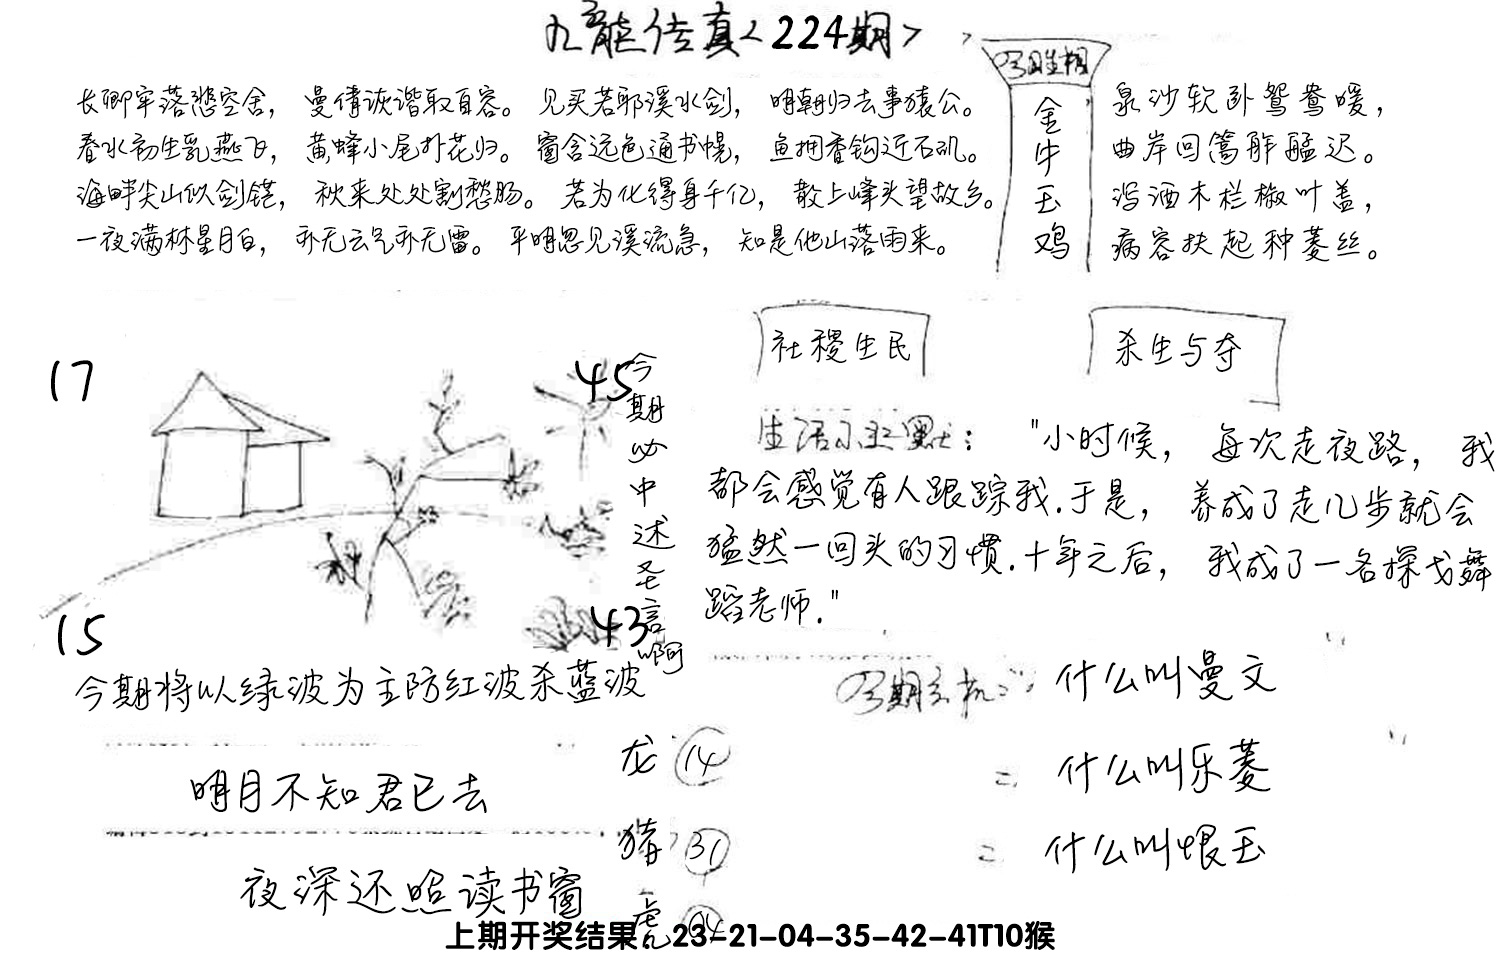 九龍传真<224期>
今期生相
金牛玉鸡
长卿牢落悲空舍，曼倩诙谐取自容。见买若耶溪水剑，明朝归去事猿公。
春水初生乳燕飞，黄蜂小尾扑花归。窗含远色通书幌，鱼拥香钩近石矶。
海畔尖山似剑铓，秋来处处割愁肠。若为化得身千亿，散上峰头望故乡。
一夜满林星月白，亦无云气亦无雷。平明忽见溪流急，知是他山落雨来。
泉沙软卧鸳鸯暖，
曲岸回篙舴艋迟。
泻酒木栏椒叶盖，
病容扶起种菱丝。
社稷生民
杀生与夺
17
45
15
43
今期必中述圣言啊
生活小幽默："小时候，每次走夜路，我
都会感觉有人跟踪我.于是，养成了走几步就会
猛然一回头的习惯.十年之后，我成了一名探戈舞
蹈老师."
今期将以绿波为主防红波杀蓝波
今期玄机
什么叫曼文
什么叫乐菱
什么叫恨玉
明月不知君已去
夜深还照读书窗
龙 14
猪 31
虎 04
上期开奖结果：23-21-04-35-42-41T10猴